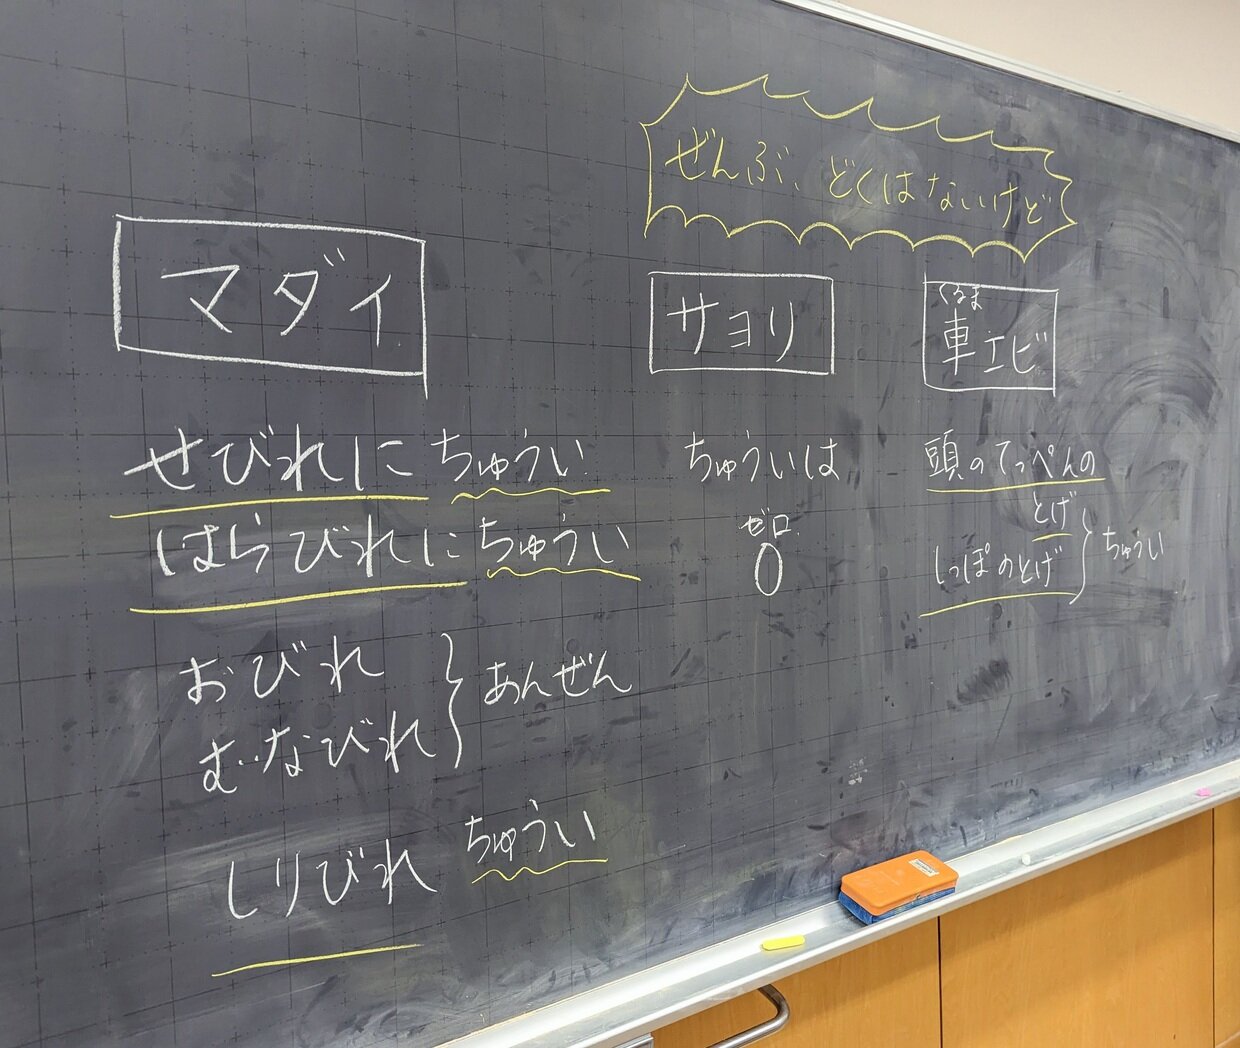 ぜんぶ、どくはないけど
マダイ
せびれに ちゅうい
はらびれに ちゅうい
おびれ
むなびれ
あんぜん
しりびれ ちゅうい
サヨリ
ちゅういは
ゼロ
0
くるま
車エビ
頭のてっぺんの
とげ
しっぽのとげ
ちゅうい